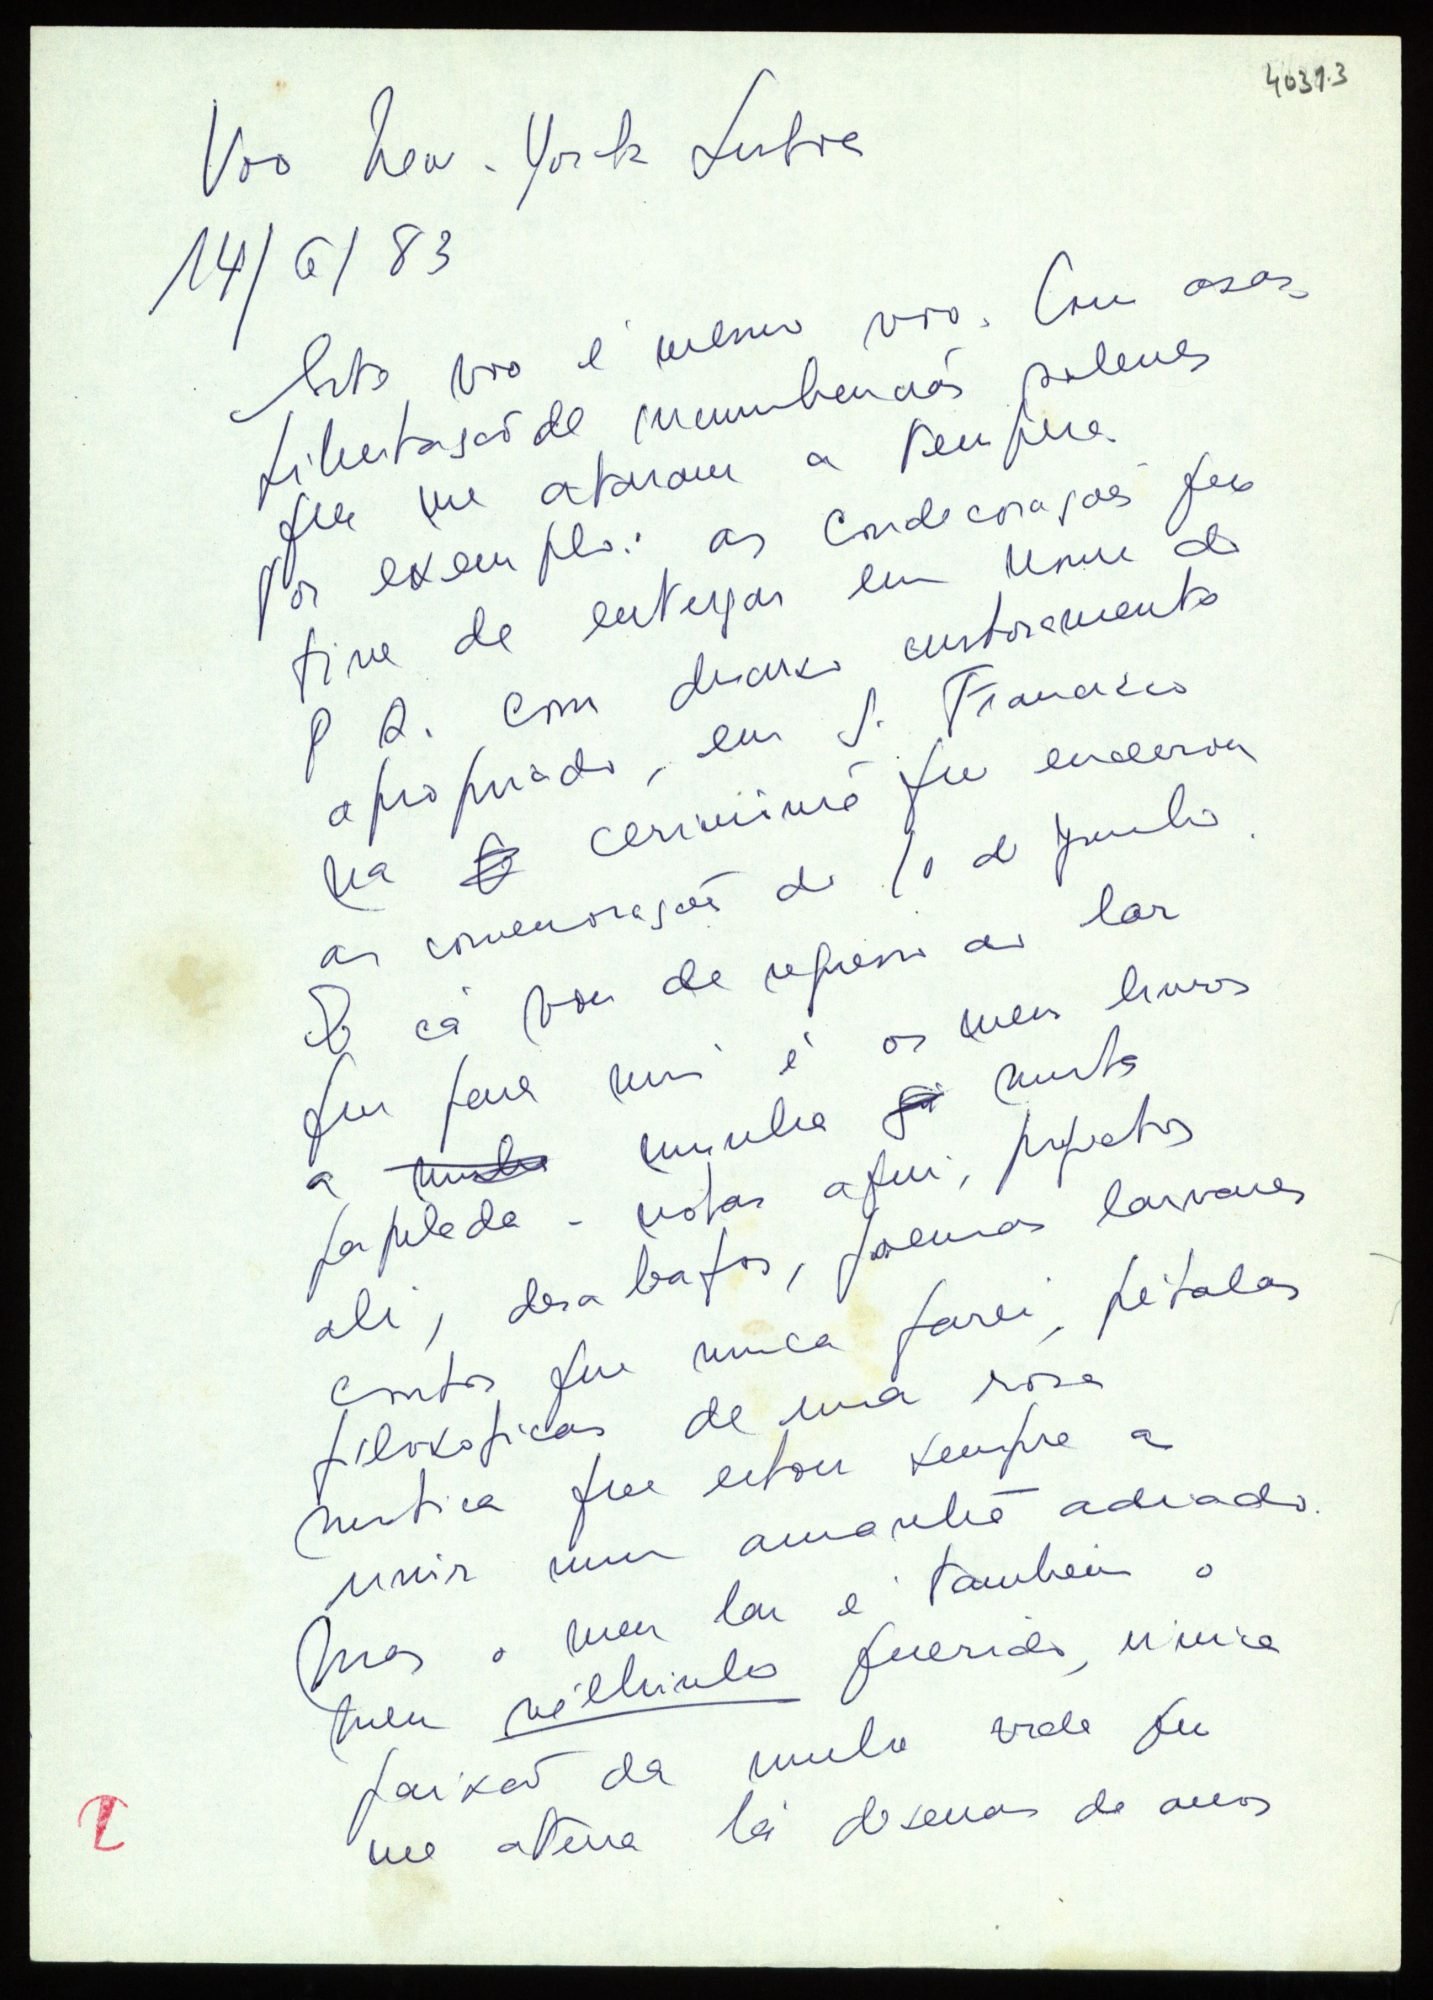 4031.3
Voo New-York Lisboa
14/6/83
Este voo é mesmo voo. Com asas,
libertação de incumbências solenes
que me ataram a
Por exemplo: as condecorações que
tive de entregar em nome do
P R. com discurso
apropriado, em S. Francisco
na cerimónia que encerrou
as comemorações do 10 de Junho.
E cá vou de regresso ao lar
que para mim é os meus livros
a minha muita
papelada - notas aqui, projectos
ali, desabafos, poemas larvares
contos que nunca farei, pétalas
filosóficas de uma rosa
mística que estou sempre a
unir num amanhã adiado.
Mas o meu lar é também o
meu velhinho querido, única
paixão da minha vida que
me atura há dezenas de anos
I